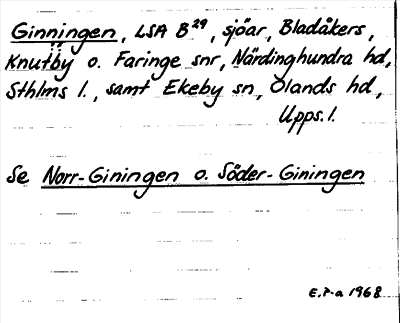 Ginningen, LSA B²⁹, sjöar, Bladåkers,
Knutby o. Faringe snr, Närdinghundra hd,
Sthlms l., samt Ekeby sn, Olands hd,
Upps. l.
Se Norr-Giningen o. Söder-Giningen
E.P-a 1968